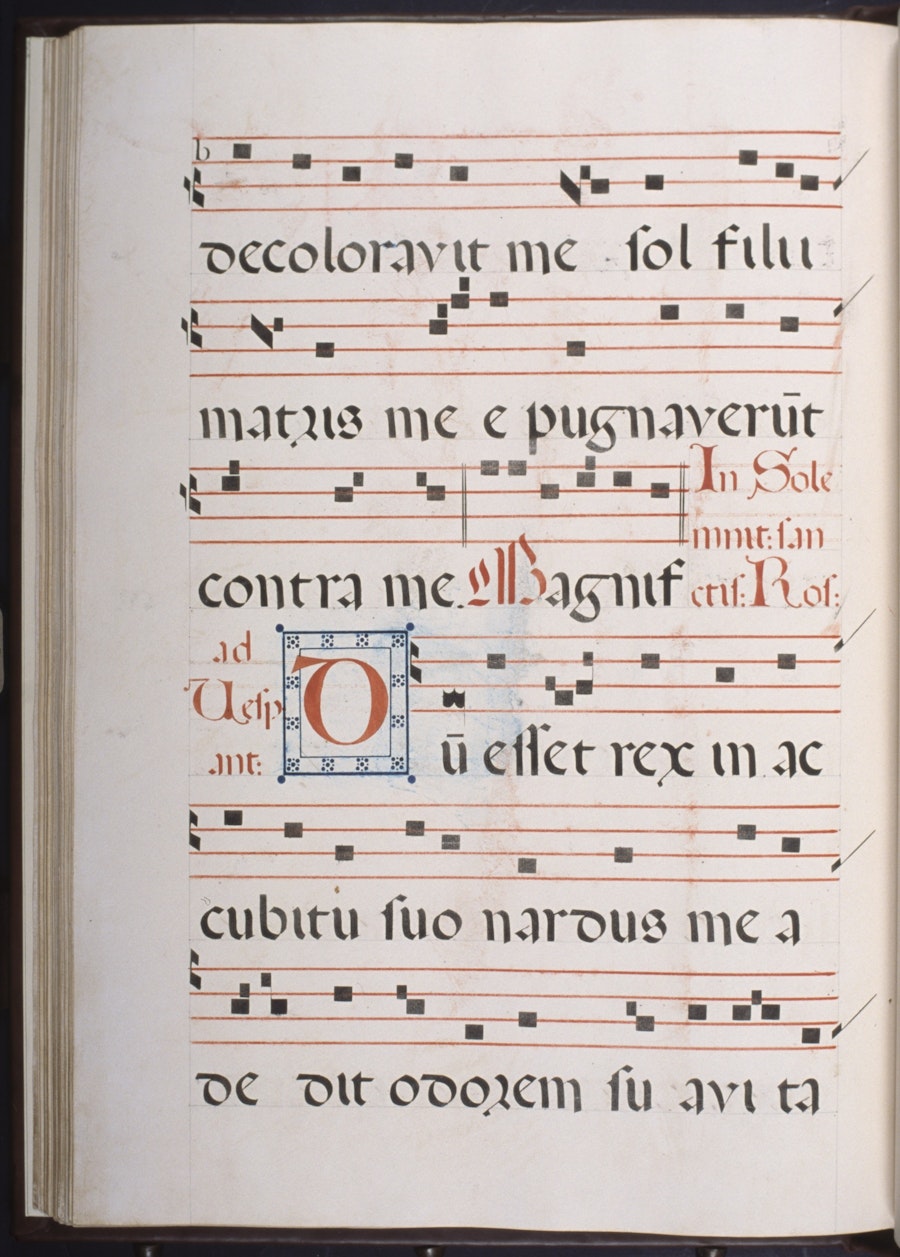 b
decoloravit me sol filii
matris me e pugnaverūt
contra me. Magnif In Sole
mnit: san
ctis: Ros:
ad
Vesp
ant:
Dū esset rex in ac
cubitu suo nardus me a
de dit odorem su avi ta